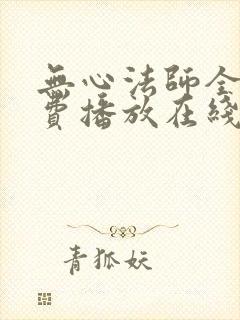 無心法師全
費播放在綫
青狐妖